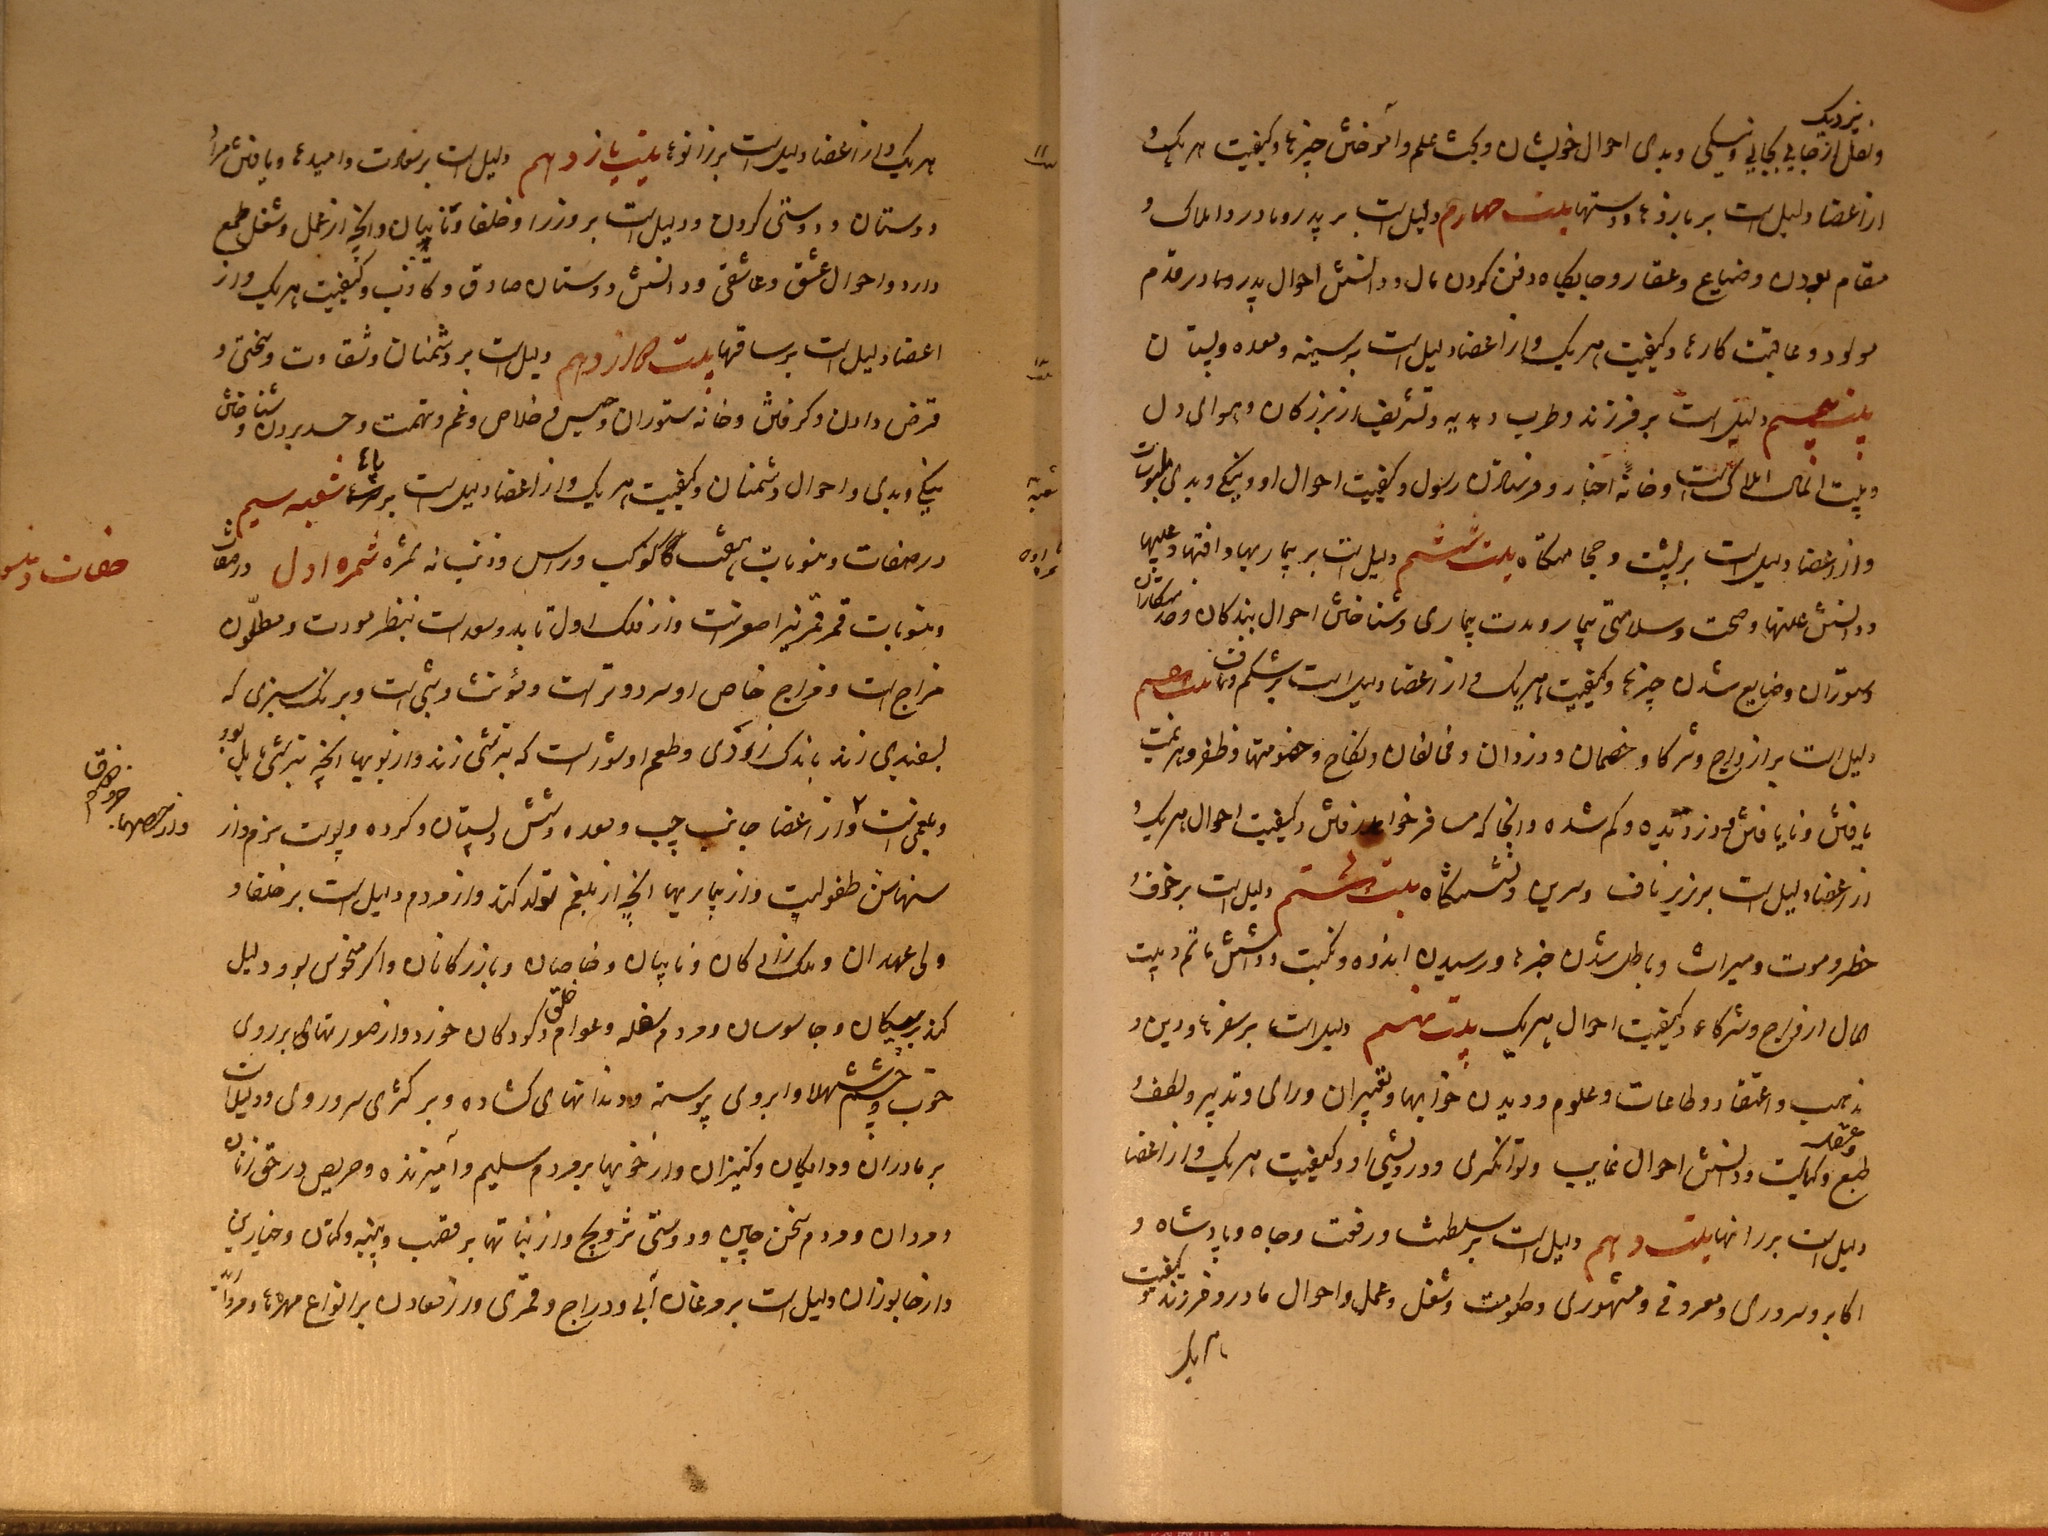 نزدیک
و نقل از جایی بجایی و نیکی و بدی احوال خویشان و بحث علم و آموختن چیزها و کیفیت هر یک و
از اعضا دلیل است بر بازوها و دستها بیت چهارم دلیل است بر پدر و مادر و املاک و
مقام بودن و ضیاع و عقار و جایگاه دفن کردن مال و دانستن احوال پدر و مادر قدم
مولود و عاقبت کارها و کیفیت هر یک و از اعضا دلیل است بر سینه و معده و پستان
بیت پنجم دلیل است بر فرزند و طرب و هدیه و تشریف از بزرگان و هوای دل
و بیت المال املاک است و خانهٔ اخبار و فرستادن رسول و کیفیت احوال او و نیکی و بدی
و از اعضا دلیل است بر پشت و بیت ششم دلیل است بر بیماریها و آفتها و علتها
و دانستن علتها و صحت و سلامتی بیمار و مدت بیماری و شناختن احوال بندگان و خدمتکاران
و ستوران و ضایع شدن چیزها و کیفیت هر یک و از اعضا دلیل است بر شکم و ناف بیت هفتم
دلیل است بر ازواج و شرکا و خصمان و دزدان و مخالفان و نکاح و خصومتها و ظفر و هزیمت
یافتن و نایافتن دزدیده و گم شده و آنجا که مسافر خواهد رفتن و کیفیت احوال هر یک و
از اعضا دلیل است بر زیر ناف و سرین و نشستگاه بیت هشتم دلیل است بر خوف و
خطر و موت و میراث و باطل شدن چیزها و رسیدن اندوه و نکبت و دانستن ماتم و بیت
المال ازواج و شرکاء و کیفیت احوال هر یک بیت نهم دلیل است بر سفرها و دین و
مذهب و اعتقاد و طاعات و علوم و دیدن خوابها و تعبیر آن و رای و تدبیر و لطف و
طبع و عقل و کهانت و دانستن احوال غایب و توانگری و درویشی او و کیفیت هر یک و از اعضا
دلیل است بر رانها بیت دهم دلیل است بر سلطنت و رفعت و جاه و پادشاه و
اکابر و سروری و معروفی و مشهوری و حکومت و شغل و عمل و احوال مادر و فرزند کیفیت
هر یک
هر یک و از اعضا دلیل است بر زانوها بیت یازدهم دلیل است بر سعادت و امیدها و یافتن مراد
و دوستان و دوستی کردن و دلیل است بر وزرا و خلفا و نایبان و آنچه از عمل و شغل طمع
دارد و احوال عشق و عاشقی و دانستن دوستان صادق و کاذب و کیفیت هر یک و از
اعضا دلیل است بر ساقها بیت دوازدهم دلیل است بر دشمنان و شقاوت و سختی و
قرض دادن و گرفتن و خانه ستوران و حبس و خلاص و غم و تهمت و حسد بردن و شناختن
نیکی و بدی و احوال دشمنان و کیفیت هر یک و از اعضا دلیل است بر پاها شعبه سیم
در صفات و منسوبات هفت کوکب و راس و ذنب نه ثمره ثمره اول در صفات
و منسوبات قمر قمر نیر اصغرست و از فلک اول تابد و سعد است بنظر مودت و معلّون
مزاج است و مزاج خاص او سرد و تر است و مؤنث و شبی است و برنگ سبزی که
بسفیدی زند باندک زردی و طعم او شور است که بترشی زند و از بویها آنچه بترشی مایل بود
و از اعضا جانب چپ و معده و شش و پستان و گرده و پوست نرم و از
سنها سن طفولیت و از بیماریها آنچه از بلغم تولد کند و از مردم دلیل است بر خلفا و
ولی عهدان و ملک زادگان و نایبان و حاجبان و بازرگانان و اگر منحوس بود دلیل
کند بر پیکان و جاسوسان و مردم سفله و عوام خلق و کودکان خرد و از صورتهای بر روی
خوب و چشم شهلا و ابروی پیوسته و دندانهای گشاده و بر کژی سر و روی و دلیل است
بر مادران و دایگان و کنیزان و از خویها بر مردم سلیم و آمیزنده و حریص در حق زنان
و مردان و مردم سخن چین و دوستی تزویج و از نباتها بر قصب و پنبه و کتان و خیارین
و از جانوران دلیل است بر مرغان آبی و دراج و قمری و از معادن بر انواع مهره‌ها و مروارید